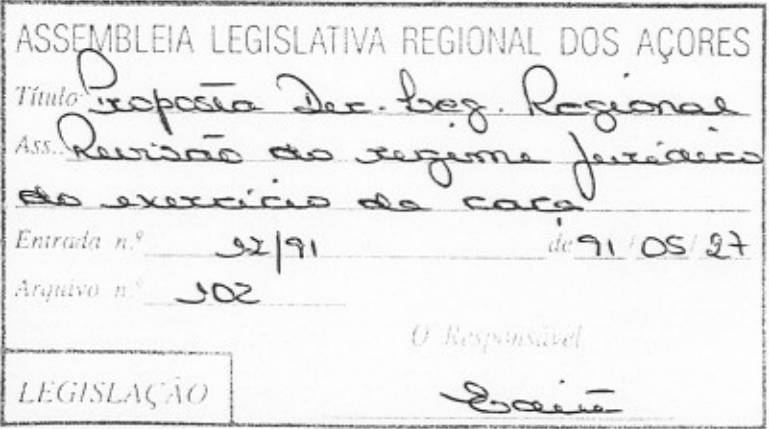 ASSEMBLEIA LEGISLATIVA REGIONAL DOS AÇORES
Título Proposta Dec. Leg. Regional
Ass. Revisão do regime jurídico
do exercício da caça
Entrada n.º /91 de 91/05/27
Arquivo n.º 102
O Responsável
LEGISLAÇÃO